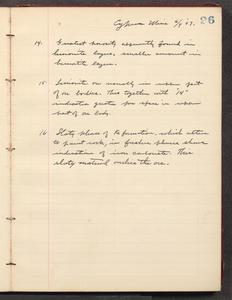 Cyprus Mine 5/9 27. 26
14. Greatest porosity apparently found in
limonite layers, smaller amount in
hematite layers.
15 Limonite ore usually in upper part
of ore bodies. This together with "14"
indicates greater pore space in upper
part of ore body.
16 Slaty phase of Fe formation, which alters
to paint rock, in fresher phases shows
indications of iron carbonate. This
slaty material underlies the ore.